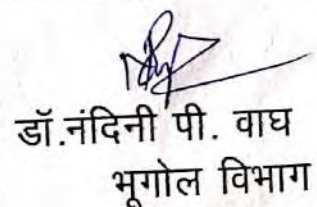 डॉ.नंदिनी पी. वाघ
भूगोल विभाग